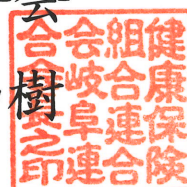 樹
健康保険
組合連合
会岐阜連
合会之印